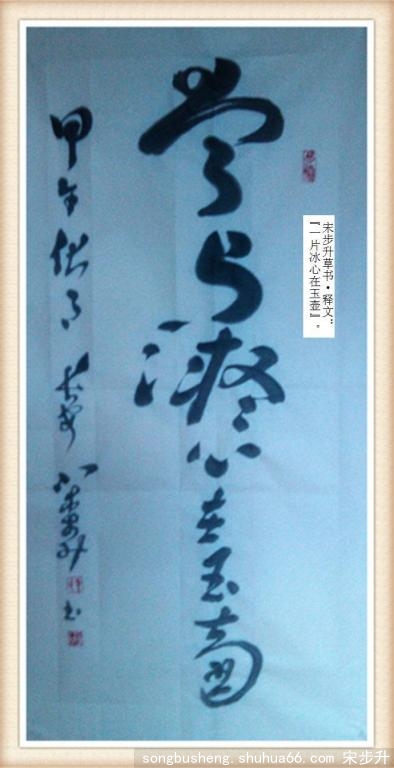 宋步升草书·释文：
『一片冰心在玉壶』。
心在玉壶
甲午 月 长安 宋步升 书
songbusheng.shuhua66.com 宋步升